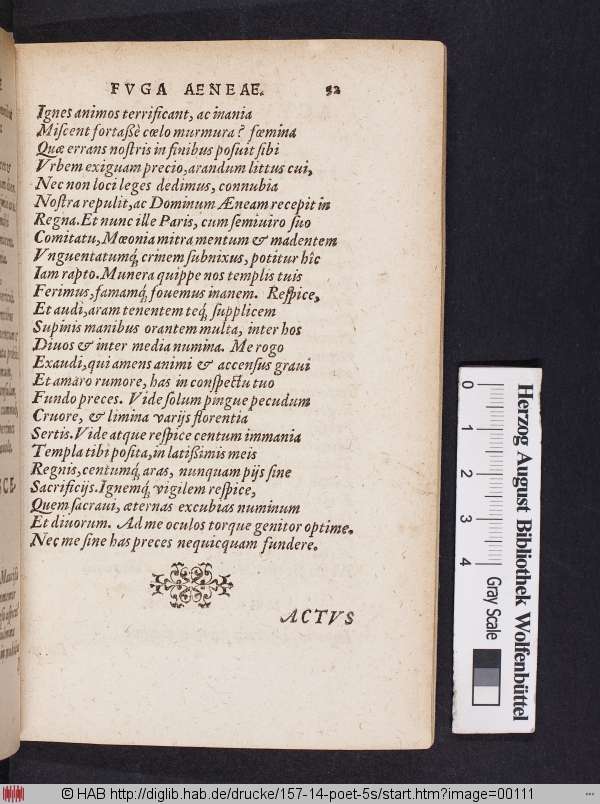 FVGA AENEAE. 52
Ignes animos terrificant, ac inania
Miſcent fortaßè cœlo murmura? fœmina
Quæ errans noſtris in finibus poſuit ſibi
Vrbem exiguam precio, arandum littus cui,
Nec non loci leges dedimus, connubia
Noſtra repulit, ac Dominum Æneam recepit in
Regna. Et nunc ille Paris, cum ſemiuiro ſuo
Comitatu, Mœonia mitra mentum & madentem
Vnguentatumq́; crinem ſubnixus, potitur hîc
Iam rapto. Munera quippe nos templis tuis
Ferimus, famamq́; fouemus inanem. Reſpice,
Et audi, aram tenentem teq́; ſupplicem
Supinis manibus orantem multa, inter hos
Diuos & inter media numina. Me rogo
Exaudi, qui amens animi & accenſus graui
Et amaro rumore, has in conſpectu tuo
Fundo preces. Vide ſolum pingue pecudum
Cruore, & limina varijs florentia
Sertis. Vide atque reſpice centum immania
Templa tibi poſita, in latißimis meis
Regnis, centumq́; aras, nunquam pijs ſine
Sacrificijs. Ignemq́; vigilem reſpice,
Quem ſacraui, æternas excubias numinum
Et diuorum. Ad me oculos torque genitor optime.
Nec me ſine has preces nequicquam fundere.
ACTVS
0 1 2 3 4
Gray Scale
Herzog August Bibliothek Wolfenbüttel
© HAB http://diglib.hab.de/drucke/157-14-poet-5s/start.htm?image=00111